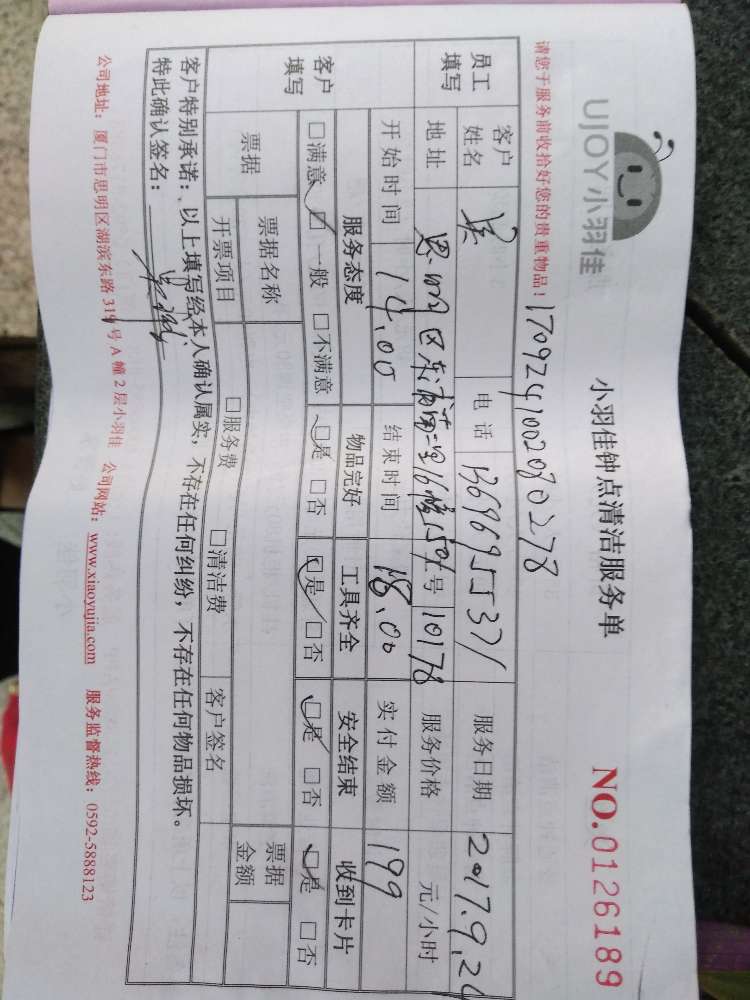 UJOY小羽佳
小羽佳钟点清洁服务单
NO.0126189
请您于服务前收拾好您的贵重物品! 170924100280278
员工填写 客户姓名 吴 电话 服务日期 2017.9.24
地址 工号 10178 服务价格 元/小时
开始时间 14.00 结束时间 18.00 实付金额 199
客户填写 服务态度 物品完好 工具齐全 安全结束 收到卡片
□满意 □一般 □不满意 □是 □否 □是 □否 □是 □否 □是 □否
票据 票据名称 票据金额
开票项目 □服务费 □清洁费 客户签名
客户特别承诺:以上填写经本人确认属实,不存在任何纠纷,不存在任何物品损坏。
特此确认签名:
公司地址:厦门市思明区湖滨东路319号A幢2层小羽佳 公司网站:www.xiaoyujia.com 服务监督热线:0592-5888123